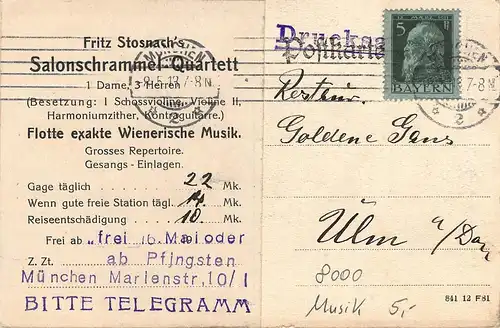 Fritz Stosnach's
Salonschrammel-Quartett
1 Dame, 3 Herren
(Besetzung: I Schossvioline, Violine II,
Harmoniumzither, Contraguitarre.)
Flotte exakte Wienerische Musik.
Grosses Repertoire.
Gesangs-Einlagen.
Gage täglich 22 Mk.
Wenn gute freie Station tägl. 14 Mk.
Reiseentschädigung 10 Mk.
Frei ab frei 16. Mai oder
Z. Zt. ab Pfingsten
München Marienstr, 10/I
BITTE TELEGRAMM
MÜNCHEN
8.5.13.7-8N
2
Drucksa
Postkarte
5
BAYERN
2
Restaur.
Goldene Gans
Ulm a/Don
8000
Musik 5,-
841 12 F.81